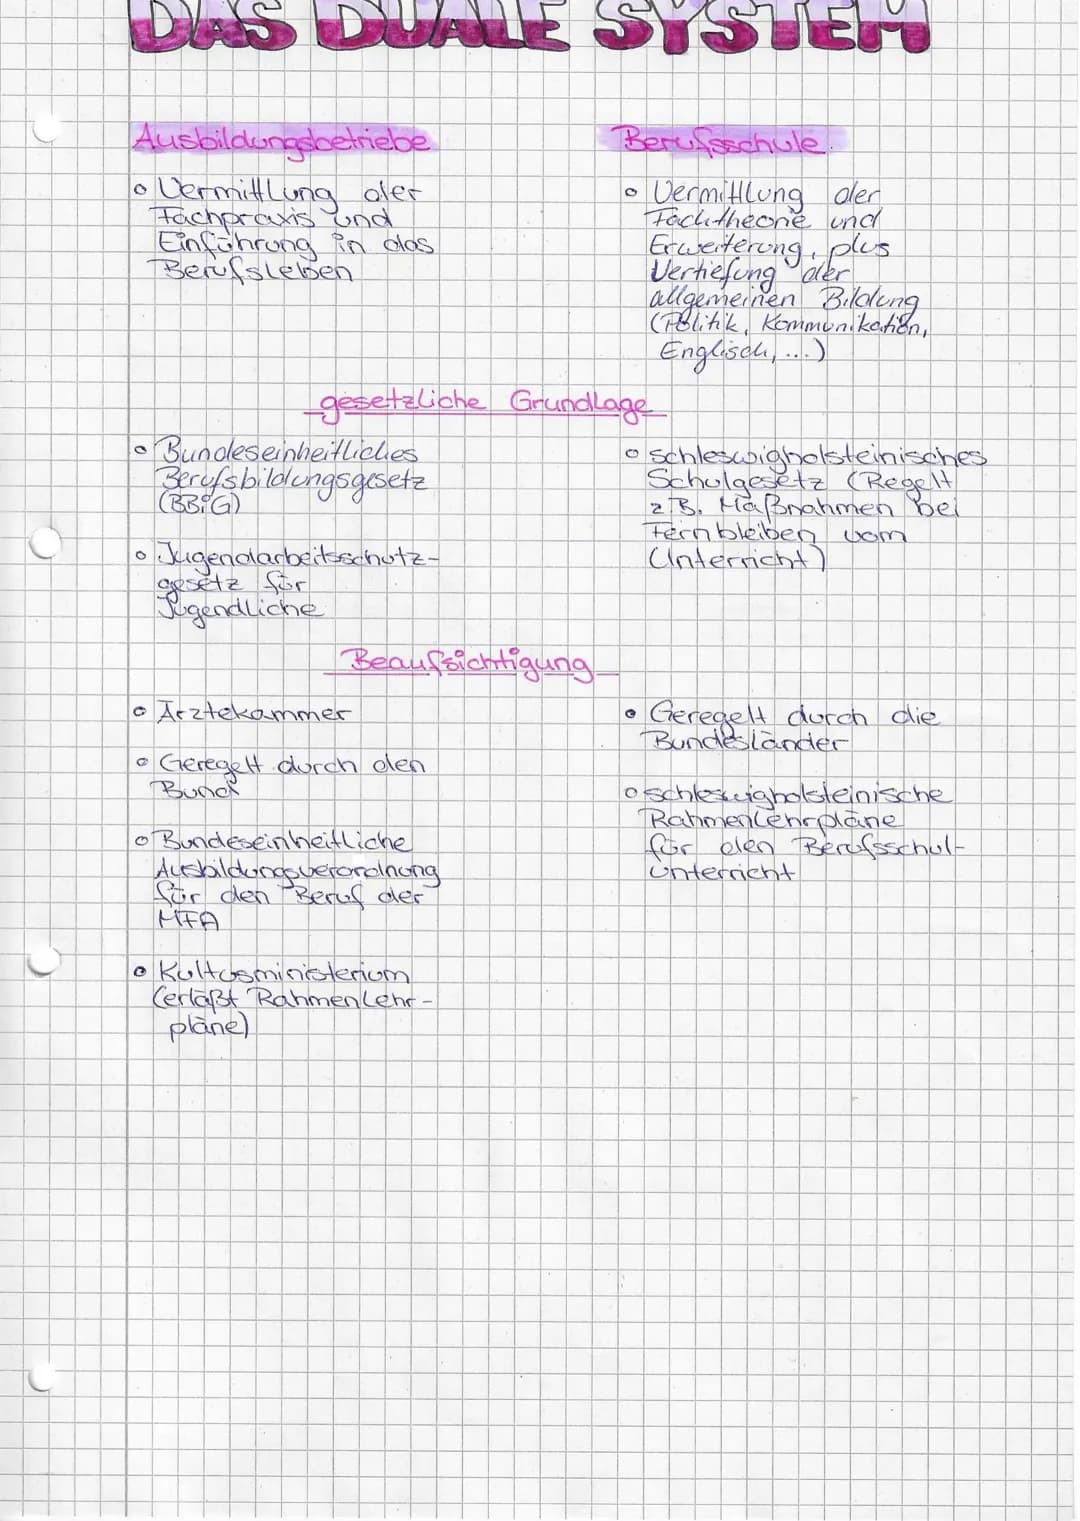 DAS DUALE SYSTEM
Ausbildungsbetriebe
o Vermittlung der
Fachpraxis und
Einführung in das
Berufsleben
Berufsschule
o Vermittlung der
Fachtheorie und
Erweiterung, plus
Vertiefung der
allgemeinen Bildung
(Politik, Kommunikation,
Englisch, ...)
gesetzliche Grundlage
o Bundeseinheitliches
Berufsbildungsgesetz
(BBiG)
o Jugendarbeitsschutz-
gesetz für
Jugendliche
o schleswigholsteinisches
Schulgesetz (Regelt
z.B. Maßnahmen bei
Fernbleiben vom
Unterricht)
Beaufsichtigung
o Ärztekammer
o Geregelt durch den
Bund
o Bundeseinheitliche
Ausbildungsverordnung
für den Beruf der
MFA
o Kultusministerium
(erläßt Rahmenlehr-
pläne)
• Geregelt durch die
Bundesländer
o schleswigholsteinische
Rahmenlehrpläne
für den Berufsschul-
unterricht